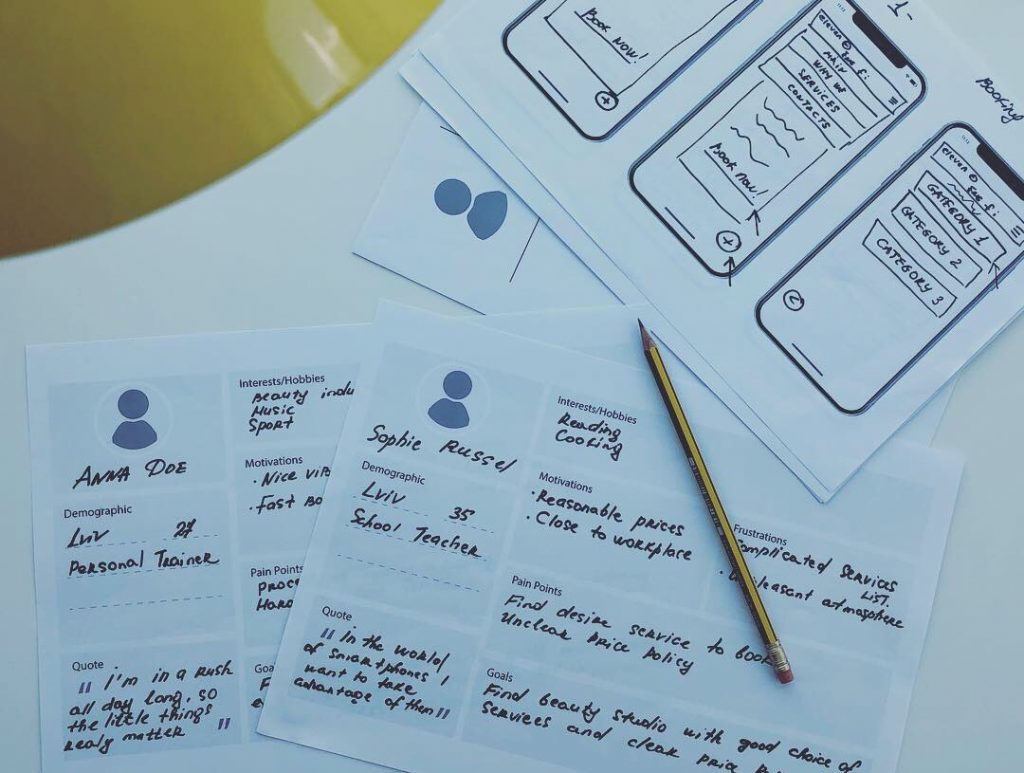 BOOK NOW!
1-
Booking
MAIN
WHY WE
SERVICES
CONTACTS
BOOK NOW!
CATEGORY 1
CATEGORY 2
CATEGORY 3
2
ANNA DOE
Demographic
Lviv 27
Personal Trainer
Quote
" I'm in a rush
all day long, so
the little things
realy matter "
Interests/Hobbies
Beauty
Music
Sport
Motivations
· Nice
· Fast
Pain Points
Sophie Russel
Demographic
Lviv 35
School Teacher
Quote
" In the world
of smartphones I
want to take
advantage of them "
Interests/Hobbies
Reading
Cooking
Motivations
· Reasonable prices
· Close to workplace
Frustrations
Complicated services
List.
· Unpleasant atmosphere
Pain Points
Find desire service to book
Unclear price policy
Goals
Find beauty studio with good choice of
services and clear price